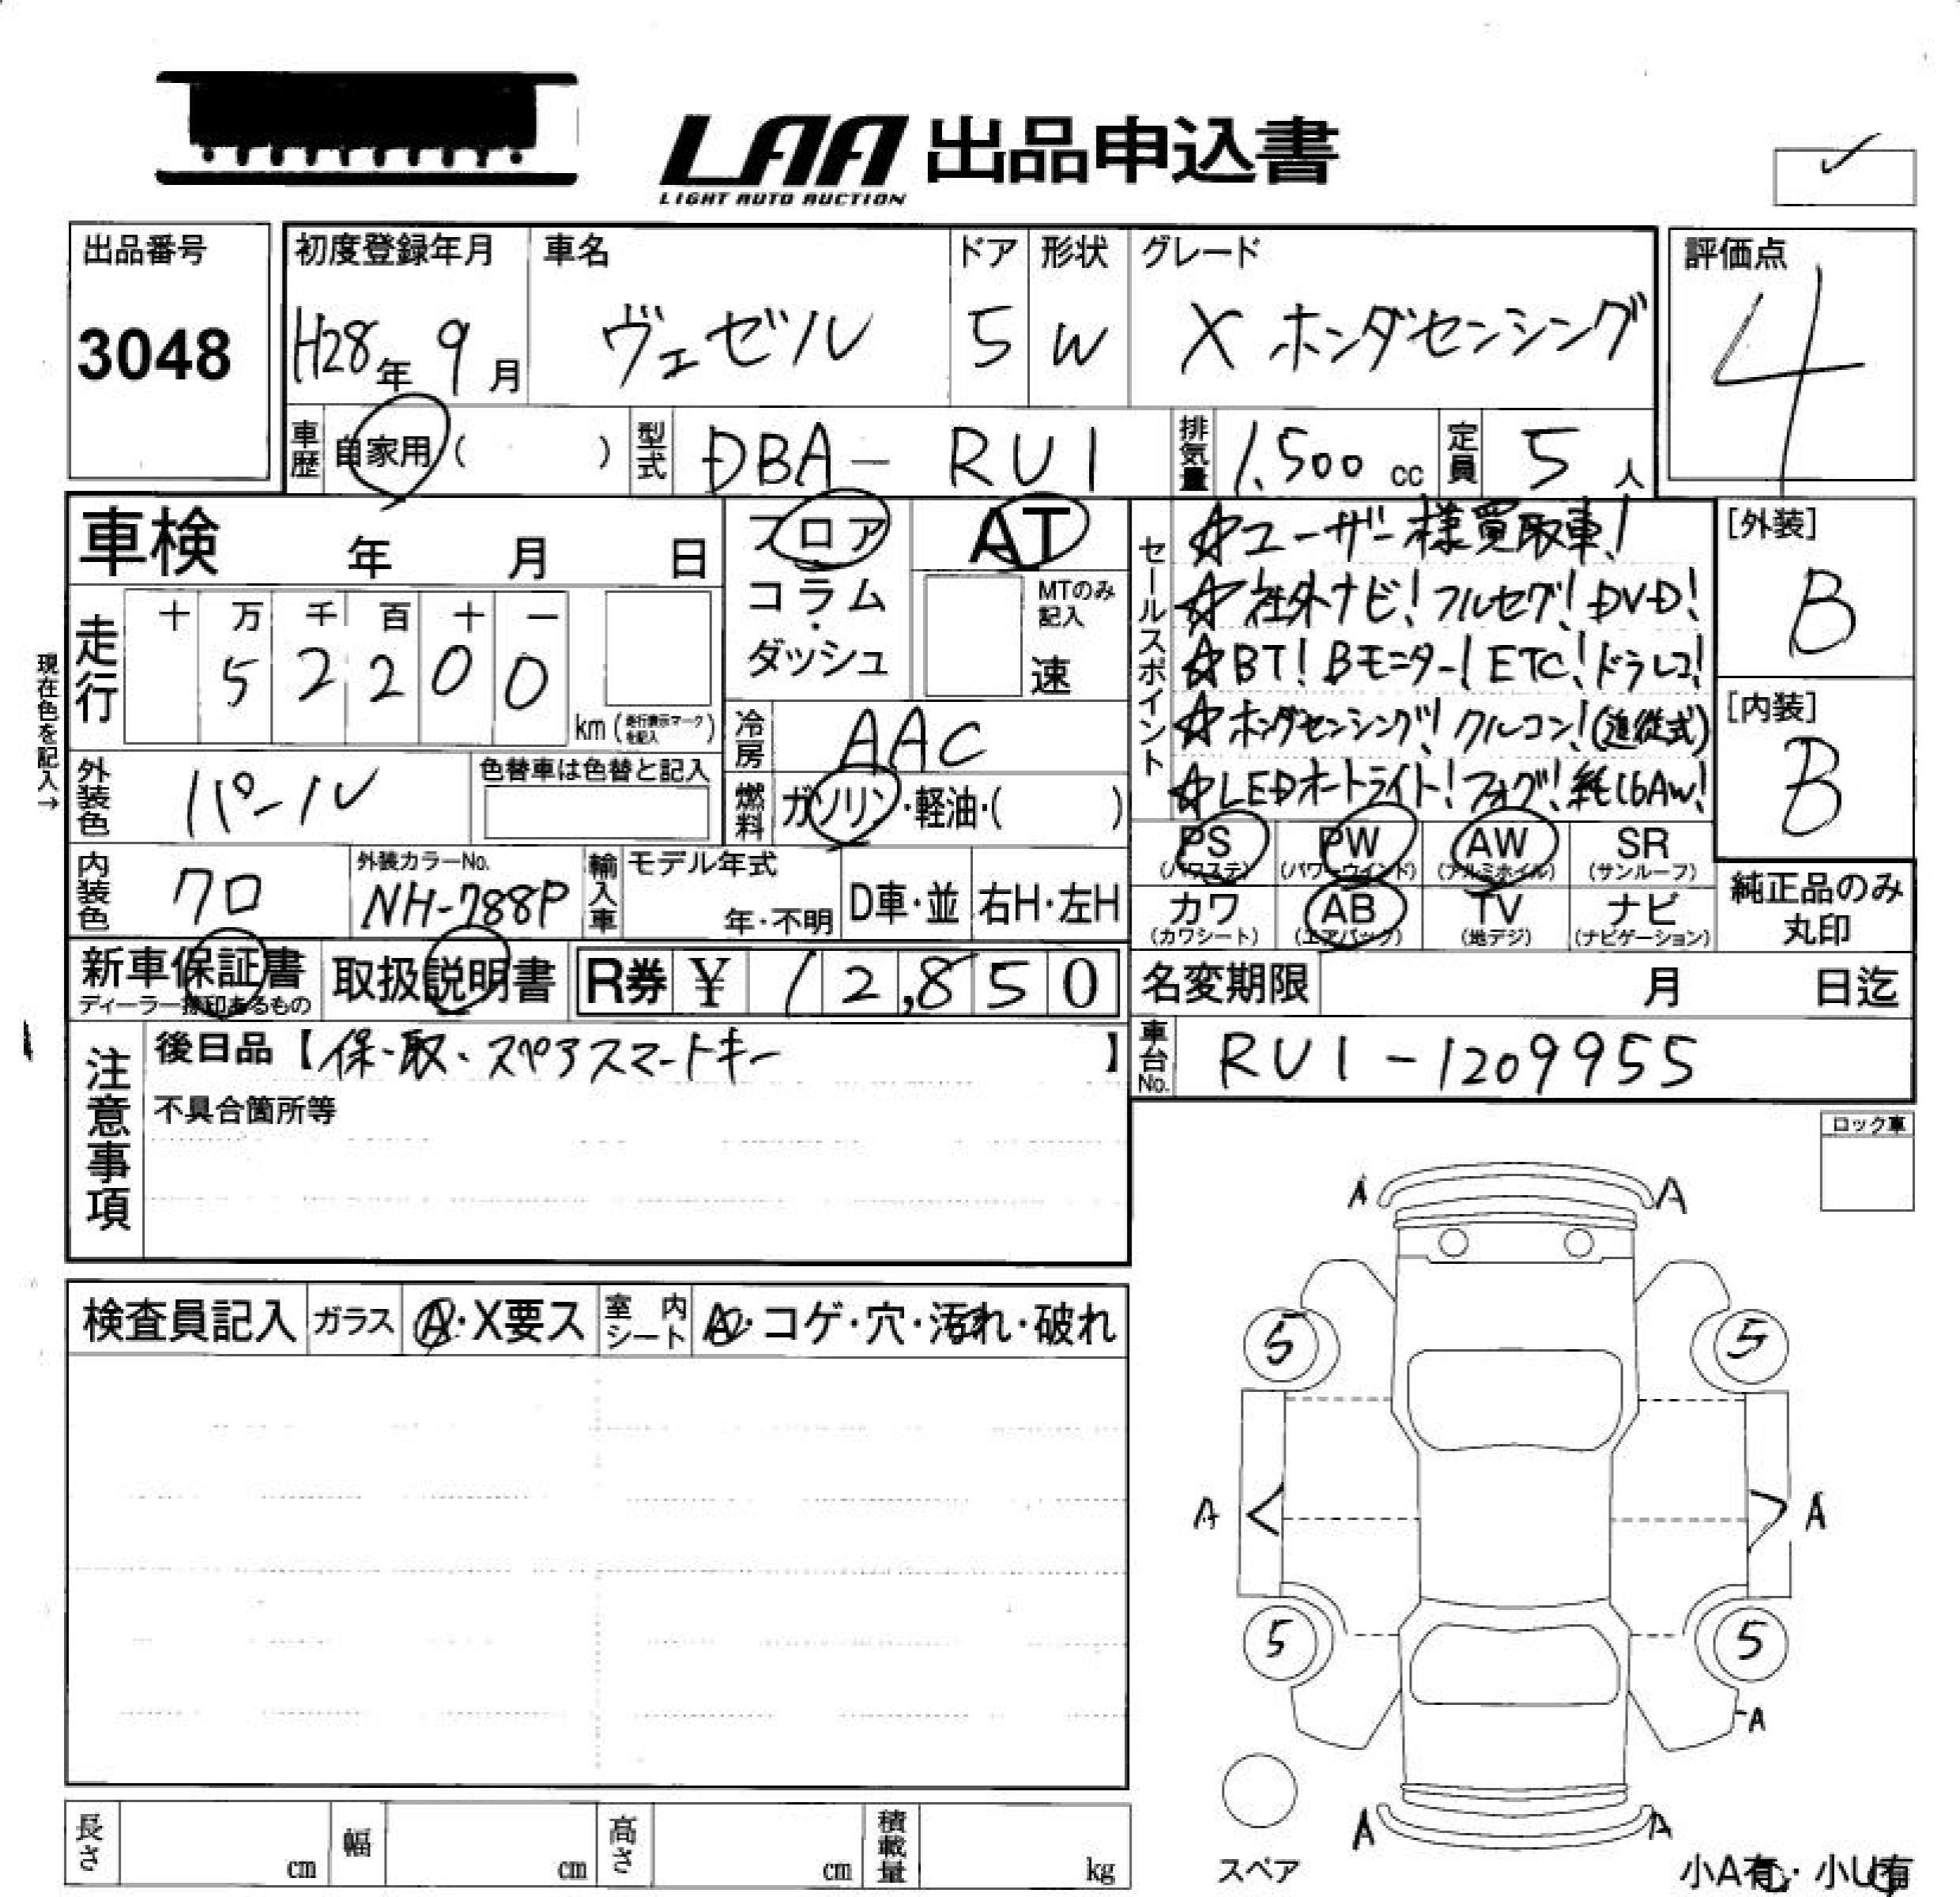 LAA 出品申込書
LIGHT AUTO AUCTION
✓
出品番号
3048
初度登録年月
H28年 9月
車名
ヴェゼル
ドア
5
形状
W
グレード
X ホンダセンシング
評価点
4
車歴 自家用 ( )
型式 DBA- RU1
排気量 1,500 cc
定員 5 人
車検 年 月 日
フロア
コラム
・
ダッシュ
AT
MTのみ
記入
速
セールスポイント
☆ユーザー様買取車!
☆社外ナビ!フルセグ!DVD!
☆BT!Bモニター!ETC!ドラレコ!
☆ホンダセンシング!クルコン!(追従式)
☆LEDオートライト!フォグ!純16AW!
[外装]
B
[内装]
B
現在色を記入→
走行
十 万 千 百 十 一
5 2 2 0 0
km (走行表示マークを記入)
冷房 AAC
燃料 ガソリン・軽油・( )
外装色 パール
色替車は色替と記入
内装色 クロ
外装カラーNo.
NH-788P
輸入車
モデル年式
年・不明
D車・並
右H・左H
PS
(パワステ)
PW
(パワーウインド)
AW
(アルミホイル)
SR
(サンルーフ)
カワ
(カワシート)
AB
(エアバック)
TV
(地デジ)
ナビ
(ナビゲーション)
純正品のみ
丸印
新車保証書
ディーラー捺印あるもの
取扱説明書
R券 ¥ 12,850
名変期限 月 日迄
車台No. RU1-1209955
注意事項
後日品【保・取・スペアスマートキー】
不具合箇所等
ロック車
検査員記入
ガラス A・X要ス
室内シート A・コゲ・穴・汚れ・破れ
A A
5 5
A < > A
5 5
A
A A
スペア
小A有・小U有
長さ cm
幅 cm
高さ cm
積載量 kg